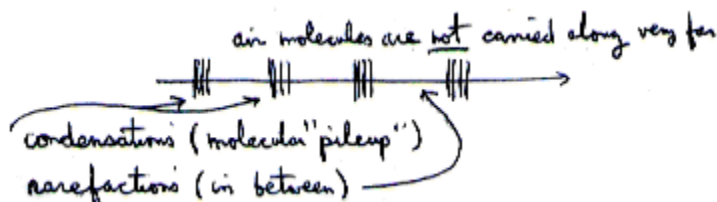 air molecules are not carried along very far
condensations (molecular "pileup")
rarefactions (in between)